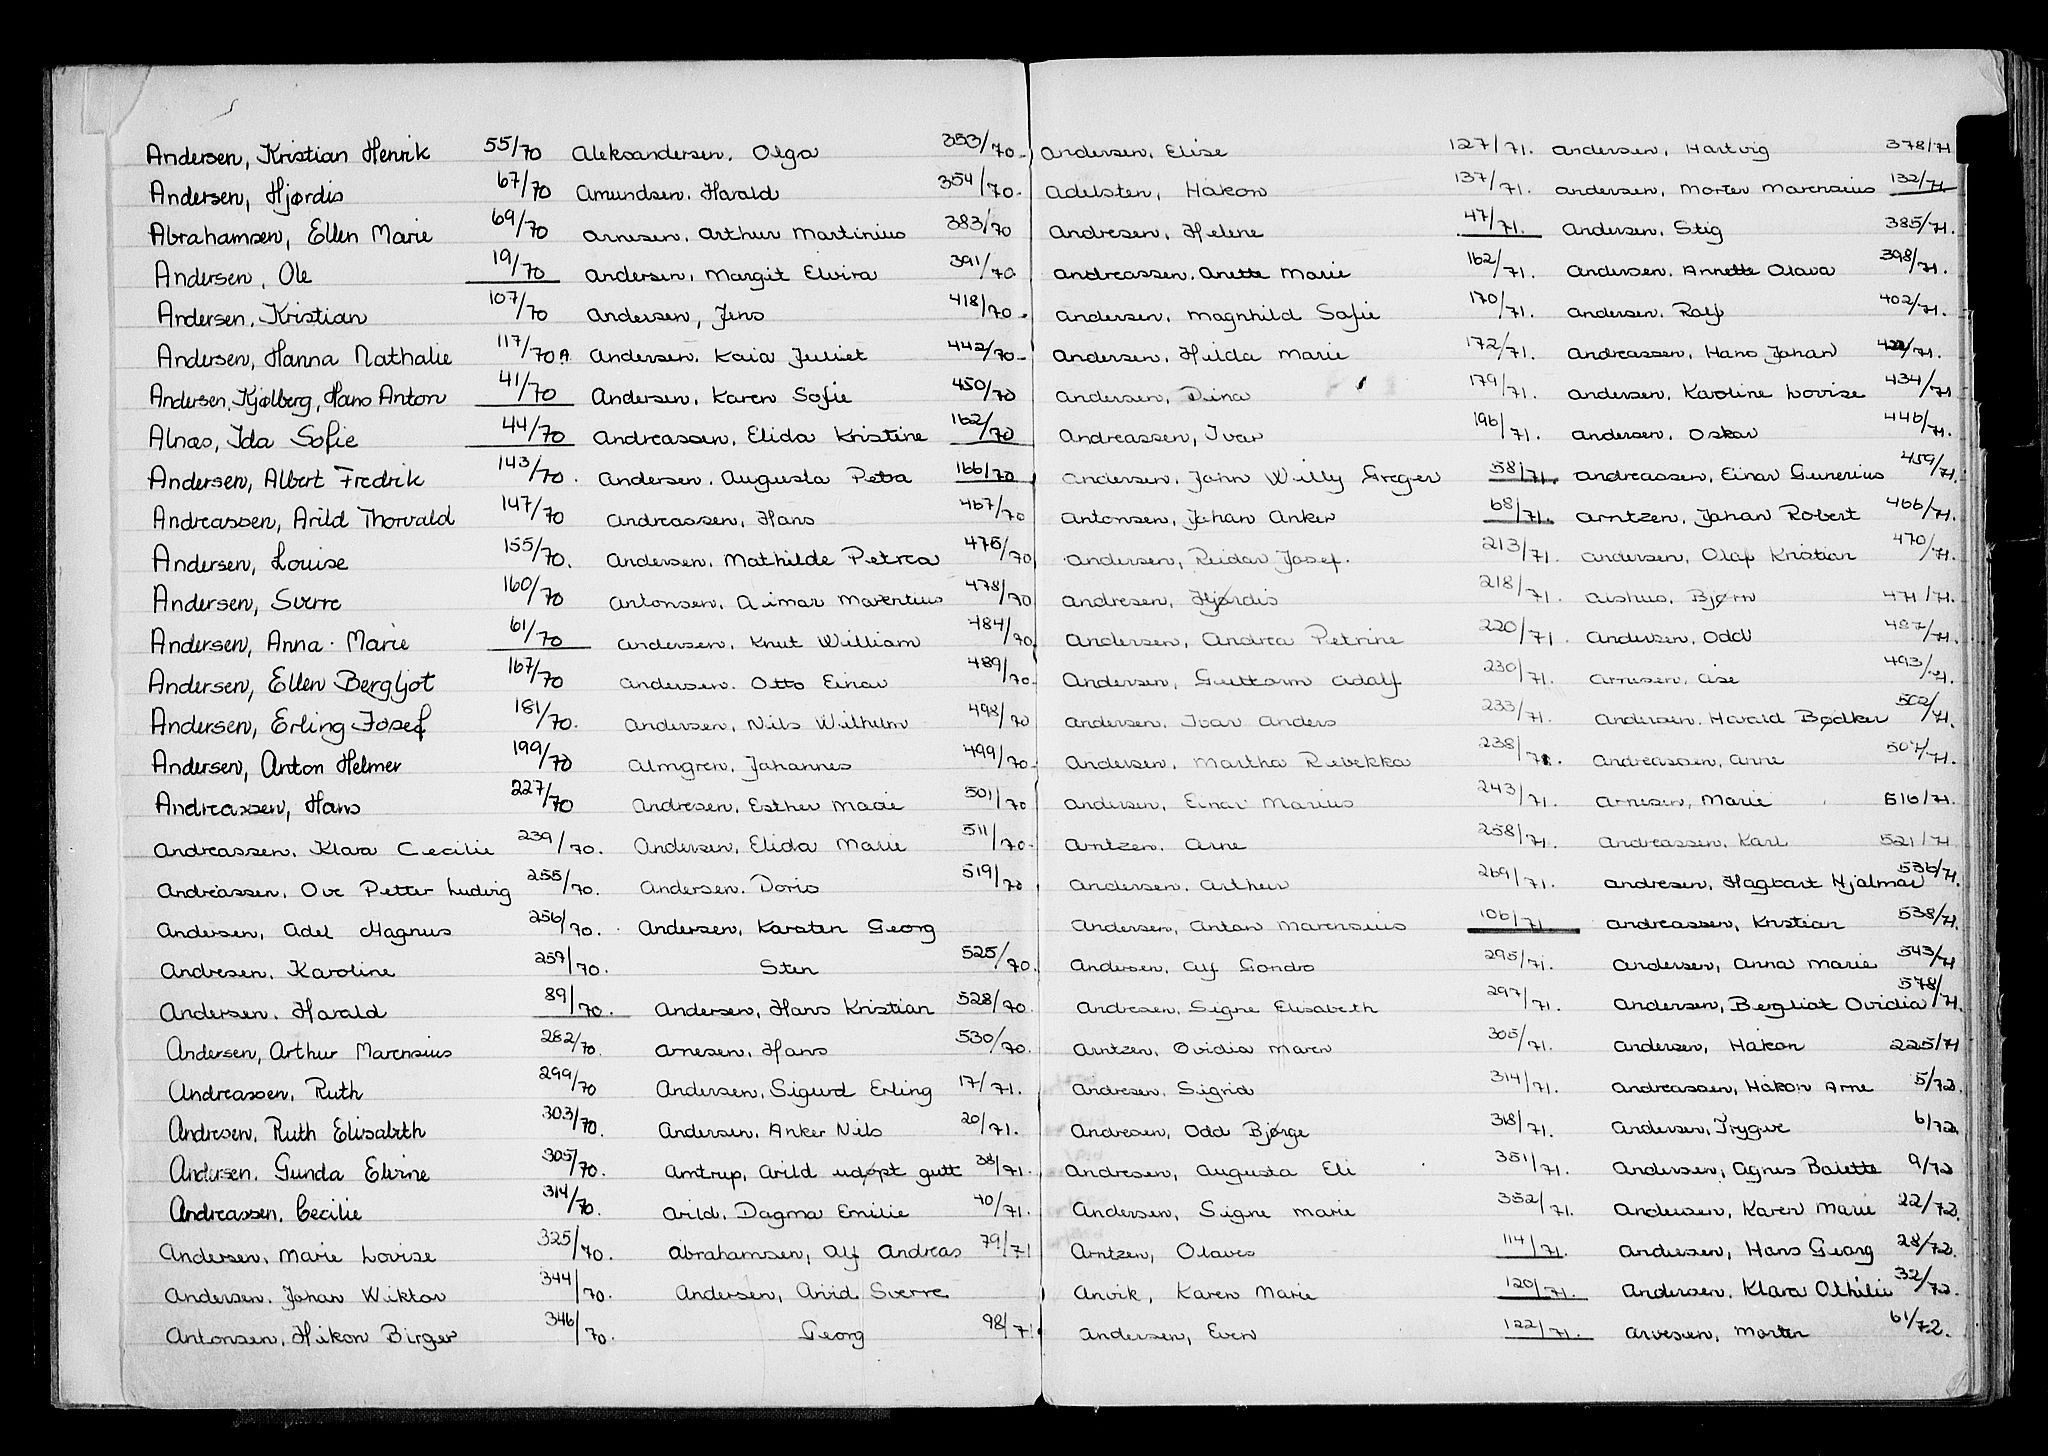 Andersen, Kristian Henrik 55/70
Andersen, Hjørdis 67/70
Abrahamsen, Ellen Marie 69/70
Andersen, Ole 19/70
Andersen, Kristian 107/70
Andersen, Hanna Nathalie 117/70A
Andersen, Kjølberg, Hans Anton 41/70
Alnæs, Ida Sofie 44/70
Andersen, Albert Fredrik 143/70.
Andreassen, Arild Thorvald 147/70
Andersen, Louise 155/70.
Andersen, Sverre 160/70
Andersen, Anna Marie 61/70
Andersen, Ellen Bergljot 167/70
Andersen, Erling Josef 181/70.
Andersen, Anton Helmer 199/70
Andreassen, Hans 227/70
Andreassen, Klara Cecilie 239/70.
Andreassen, Ove Petter Ludvig 255/70.
Andersen, Adel Magnus 256/70.
Andresen, Karoline 257/70.
Andersen, Harald 89/70.
Andersen, Arthur Marensius 282/70.
Andreassen, Ruth 299/70
Andresen, Ruth Elisabeth 303/70.
Andersen, Gunda Elvine 305/70.
Andreassen, Cecilie 314/70.
Andersen, Marie Lovise 325/70.
Andersen, Johan Wiktor 344/70.
Antonsen, Håkon Birger 346/70.
Aleksandersen, Olga 353/70.
Amundsen, Harald 354/70.
Arnesen, Arthur Martinius 383/70
Andersen, Margit Elvira 391/70
Andersen, Jens 418/70.
Andersen, Kaia Juliet 442/70
Andersen, Karen Sofie 450/70
Andreassen, Elida Kristine 162/70
Andersen, Augusta Petra 166/70
Andreassen, Hans 467/70
Andersen, Mathilde Petrea 476/70
Antonsen, Marentius 478/70
Andersen, Knut William 484/70.
Andersen, Otto Einar 489/70.
Andersen, Nils Wilhelm 498/70
Almgren, Johannes 499/70.
Andresen, Esther Marie 501/70
Andersen, Elida Marie 511/70.
Andersen, Doris 519/70
Andersen, Karsten Georg
Sten 525/70.
Andersen, Hans Kristian 528/70.
Arnesen, Hans 530/70.
Andersen, Sigurd Erling 17/71.
Andersen, Anker Nils 20/71.
Amtrup, Arild udøpt gutt 38/71.
Arild, Dagma Emilie 40/71.
Abrahamsen, Alf Andreas 79/71
Andersen, Arvid Sverre
Georg 98/71.
Andersen, Elise 127/71.
Adelsten, Håkon 137/71.
Andresen, Helene 47/71.
Andreassen, Anette Marie 162/71.
Andersen, Magnhild Sofie 170/71.
Andersen, Hilda Marie 172/71.
Andersen, Dina 179/71.
Andreassen, Ivar 196/71.
Andersen, John Willy Greger 58/71.
Antonsen, Johan Anker 68/71.
Andersen, Reidar Josef. 213/71.
Andresen, Hjørdis 218/71.
Andersen, Andrea Petrine 220/71
Andersen, Guttorm Adolf 230/71.
Andersen, Ivar Anders 233/71.
Andersen, Martha Rebekka 238/71.
Andersen, Einar Marius 243/71.
Arntzen, Arne 258/71.
Andersen, Arthur 269/71.
Andersen, Anton Marensius 106/71
Andersen, Alf Gondro 295/71.
Andresen, Signe Elisabeth 297/71.
Arntzen, Ovidia Maren 305/71.
Andresen, Sigrid 314/71.
Andresen, Odd Bjørge 318/71.
Andresen, Augusta Eli 351/71.
Andersen, Signe Marie 352/71.
Arntzen, Olaves 114/71.
Anvik, Karen Marie 120/71.
Andersen, Even 122/71.
Andersen, Hartvig 378/71
Andersen, Morten Marensius 132/71
Andersen, Stig 385/71.
Andersen, Annette Olava 398/71.
Andersen, Rolf 402/71.
Andreassen, Hans Johan
Andersen, Karoline Lovise 434/71
Andersen, Oskar 446/71.
Andreassen, Einar Gunerius 459/71.
Arntzen, Johan Robert 466/71.
Andersen, Olaf Kristian 470/71.
Aishus, Bjørn 471/71.
Andersen, Odd 487/71.
Arnesen, Åse 493/71.
Andersen, Harald Bødker 502/71.
Andreassen, Arne 507/71.
Arnesen, Marie 516/71.
Andreassen, Karl 521/71
Andresen, Hagbart Hjalmar 536/71.
Andreassen, Kristian 538/71.
Andersen, Anna Marie 543/71
Andersen, Bergliot Ovidia 578/71.
Andersen, Håkon 225/71
Andreassen, Håkon Arne 5/72.
Andersen, Trygve 6/72.
Andersen, Agnes Balette 9/72
Andersen, Karen Marie 22/72.
Andersen, Hans Georg 28/72.
Andersen, Klara Othilie 32/72.
Arvesen, Morten 61/72.